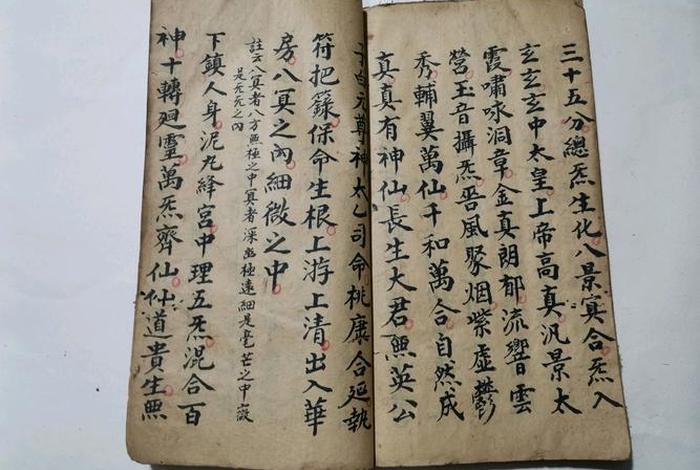 三十五分總炁生化八景冥合炁入
玄玄玄中太皇上帝高真汎景太
霞嘯咏洞章金真朗郁流響雲
營玉音攝炁風聚烟紫虛鬱
秀輔翼萬仙千和萬合自然成
真真有神仙長生大君無英公
子白元尊神太乙司命桃康合延執
符把籙保命生根上游上清出入華
房八冥之內細微之中
註云八冥者八方無極之中冥者深幽極遠細是毫芒之中微
是炁炁之內
下鎮人身泥丸絳宮中理五炁混合百
神十轉廻靈萬炁齊仙仙道貴生無